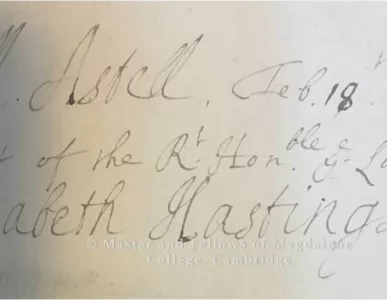 . Astell, Feb. 18
of the Rt. Honble. ye La
abeth Hastings
© Master and Fellows of Magdalene
College, Cambridge